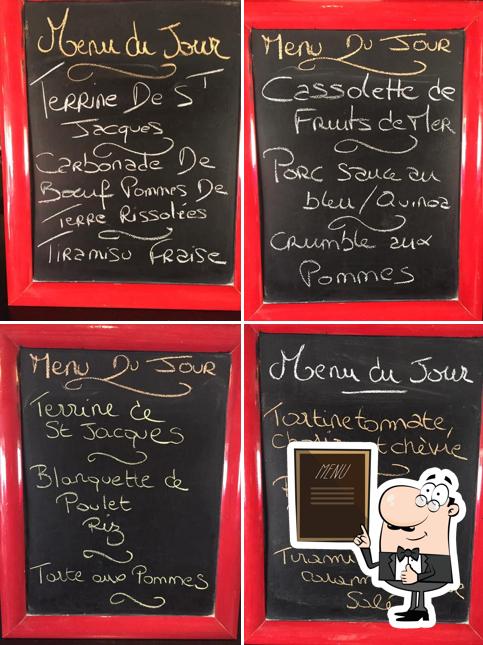 Menu du Jour
Terrine De St
Jacques
Carbonade De
Boeuf Pommes De
Terre Rissolées
Tiramisu Fraise
Menu Du Jour
Cassolette de
Fruits de Mer
Porc Sauce au
bleu/Quinoa
Crumble aux
Pommes
Menu Du Jour
Terrine de
St Jacques
Blanquette de
Poulet
Riz
Tarte aux Pommes
Menu du Jour
Tartine tomate,
chèvre
MENU